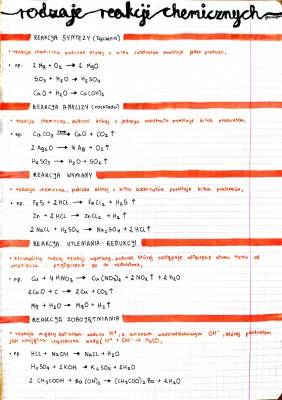 rodzaje reakcji chemicznych
REAKCJA SYNTEZY (łączenia)
• reakcja chemiczna, podczas której z kilku substratów powstaje jeden produkt.
• np. 2 Mg + O₂ → 2 MgO
SO₃ + H₂O → H₂SO₄
CaO + H₂O → Ca(OH)₂
REAKCJA ANALIZY (rozkładu)
• reakcja chemiczna, podczas której z jednego substratu powstaje kilka produktów.
• np. CaCO₃ → CaO + CO₂ ↑
2 Ag₂O → 4 Ag + O₂ ↑
H₂SO₃ → H₂O + SO₂ ↑
REAKCJA WYMIANY
• reakcja chemiczna, podczas której z kilku substratów powstaje kilka produktów.
• np. FeS + 2 HCl → FeCl₂ + H₂S ↑
Zn + 2 HCl → ZnCl₂ + H₂ ↑
2 NaCl + H₂SO₄ → Na₂SO₄ + 2 HCl ↑
REAKCJA UTLENIANIA - REDUKCJI
• szczególny rodzaj reakcji wymiany, podczas której następuje odłączenie atomu tlenu od
utleniacza i przyłączenie go do reduktora.
• np. Cu + 4 HNO₃ → Cu(NO₃)₂ + 2 NO₂ ↑ + 2 H₂O
2 CuO + C → 2 Cu + CO₂ ↑
Mg + H₂O → MgO + H₂ ↑
REAKCJA ZOBOJĘTNIANIA
• reakcja między kationem wodoru H⁺, a anionem wodorotlenkowym OH⁻, której produktem
jest cząsteczka wody (H⁺ + OH⁻ → H₂O).
• np. HCl + NaOH → NaCl + H₂O
H₂SO₄ + 2 KOH → K₂SO₄ + 2 H₂O
2 CH₃COOH + Ba(OH)₂ → (CH₃COO)₂Ba + 2 H₂O